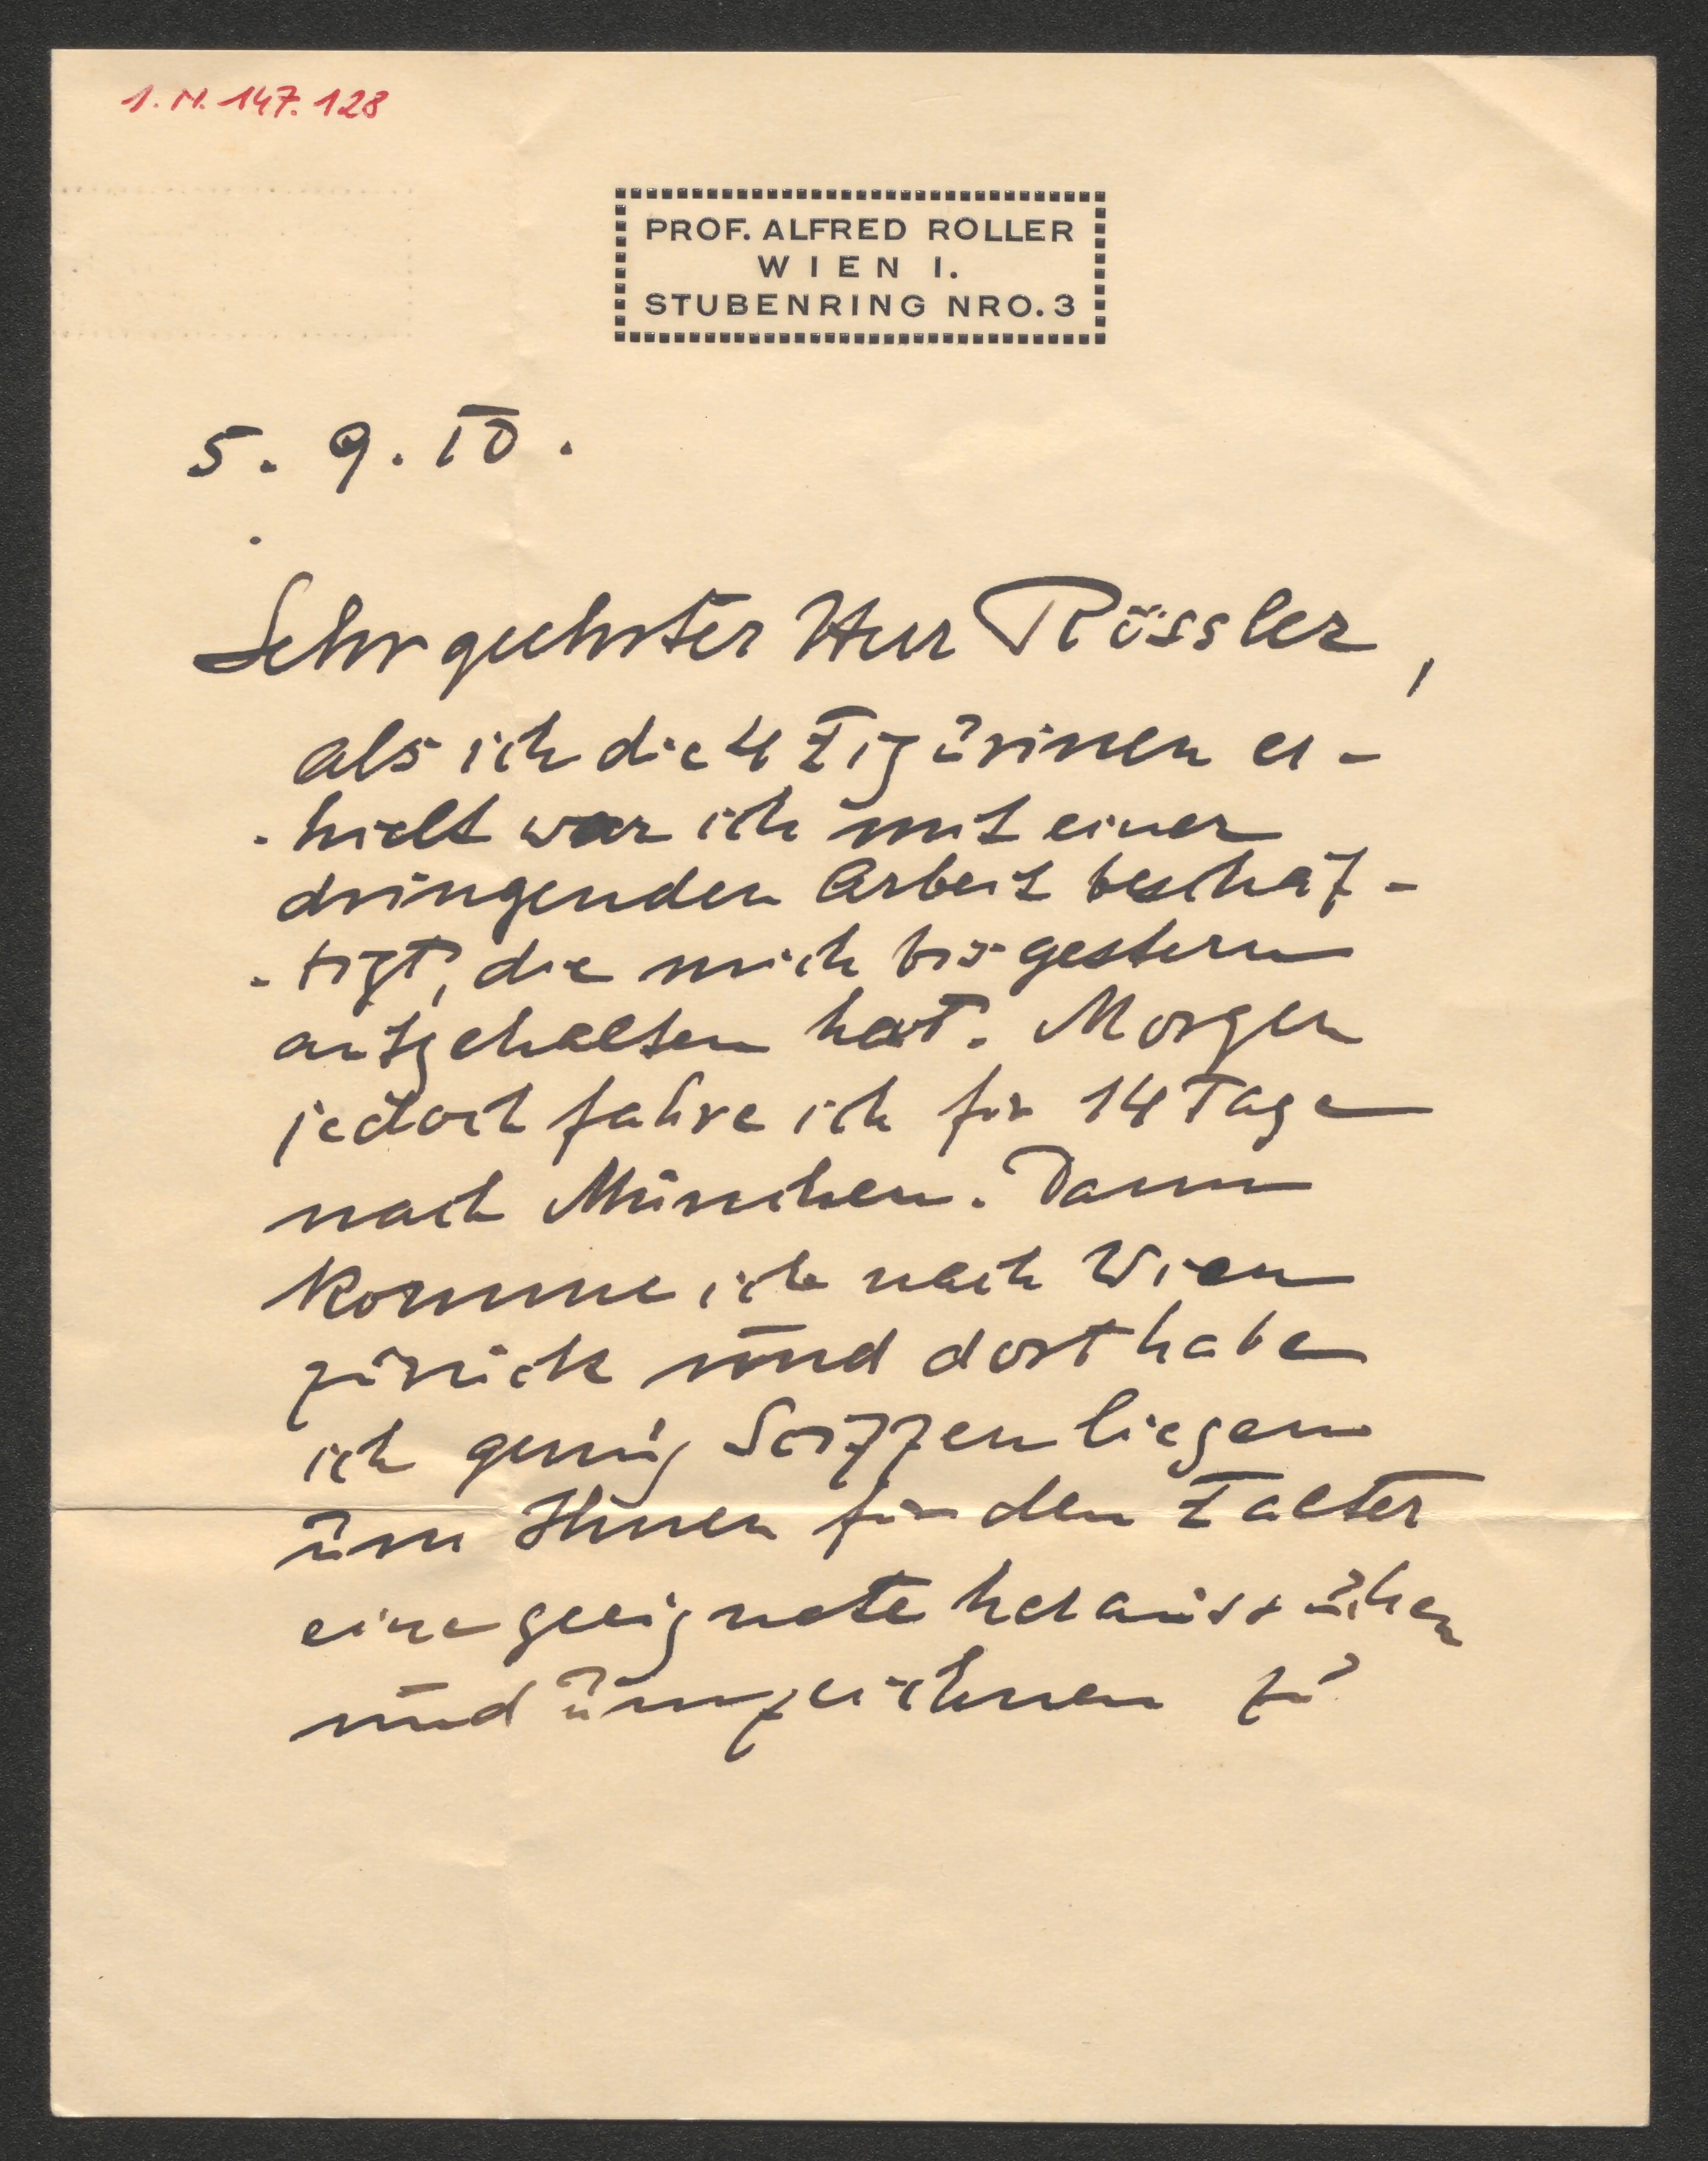 I. N. 147.128
PROF. ALFRED ROLLER
WIEN I.
STUBENRING NRO. 3
5. 9. 10.
Sehr geehrter Herr Rössler,
als ich die 4 Figurinen er-
-hielt war ich mit einer
dringenden Arbeit beschäf-
-tigt, die mich bis gestern
aufgehalten hat. Morgen
jedoch fahre ich für 14 Tage
nach München. Dann
komme ich nach Wien
zurück und dort habe
ich genug Scizzen liegen
um Ihnen für den Falter
eine geeignete heraussuchen
und umzeichnen zu